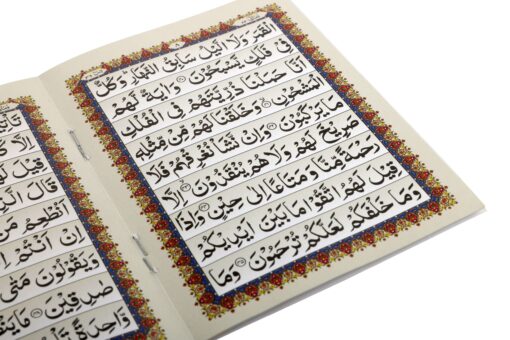 الْقَمَرَ وَلَا الَّيْلُ سَابِقُ النَّهَارِ وَكُلٌّ
فِىْ فَلَكٍ يَّسْبَحُوْنَ ﴿۴۰﴾ وَاٰيَةٌ لَّهُمْ
اَنَّا حَمَلْنَا ذُرِّيَّتَهُمْ فِى الْفُلْكِ
الْمَشْحُوْنِ ﴿۴۱﴾ وَخَلَقْنَا لَهُمْ مِّنْ مِّثْلِهٖ
مَا يَرْكَبُوْنَ ﴿۴۲﴾ وَاِنْ نَّشَاْ نُغْرِقْهُمْ فَلَا
صَرِيْخَ لَهُمْ وَلَا هُمْ يُنْقَذُوْنَ ﴿۴۳﴾ اِلَّا
رَحْمَةً مِّنَّا وَمَتَاعًا اِلٰى حِيْنٍ ﴿۴۴﴾ وَاِذَا
قِيْلَ لَهُمُ اتَّقُوْا مَا بَيْنَ اَيْدِيْكُمْ
وَمَا خَلْفَكُمْ لَعَلَّكُمْ تُرْحَمُوْنَ ﴿۴۵﴾ وَمَا
اِلَّا
قِيْلَ
قَالَ
اَنُطْعِمُ
اِنْ اَنْتُمْ
وَيَقُوْلُوْنَ مَتٰى
صٰدِقِيْنَ ﴿۴۸﴾
وَّاحِدَةً